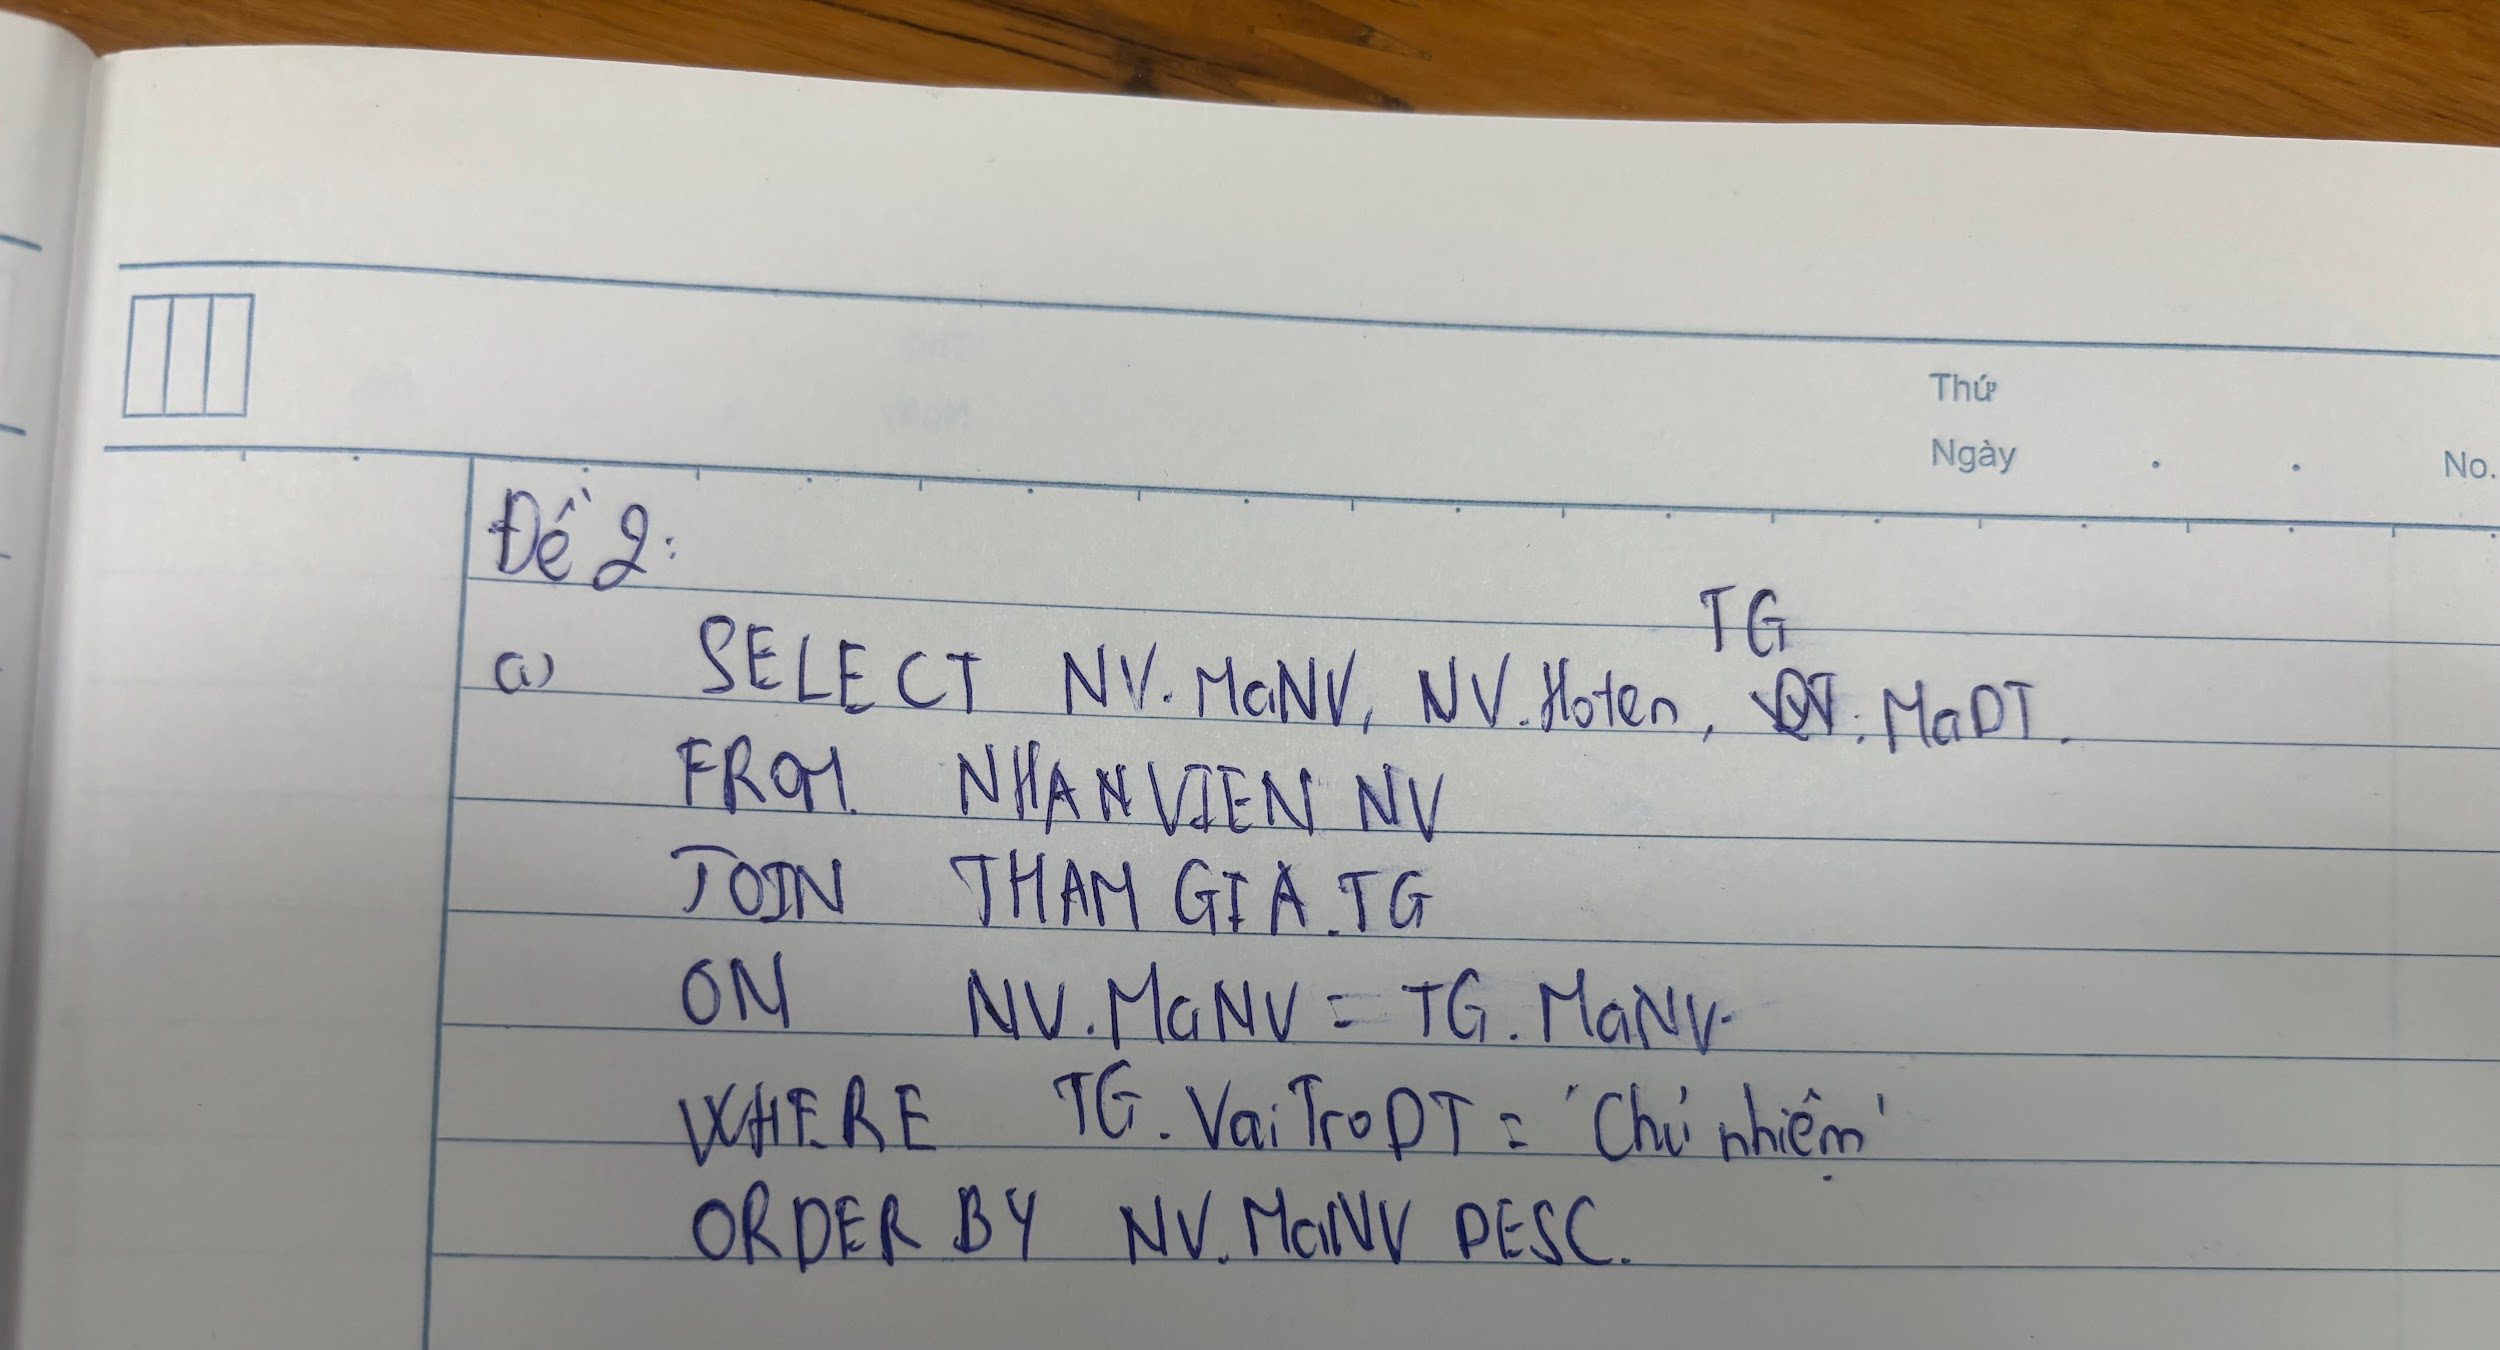 Thứ
Ngày . . No.
Đề 2:
TG
a) SELECT NV.MaNV, NV.Hoten, .MaDT.
FROM NHANVIEN NV
JOIN THAM GIA.TG
ON NV.MaNV = TG.MaNV.
WHERE TG.VaiTroDT = 'Chủ nhiệm'
ORDER BY NV.MaNV DESC.